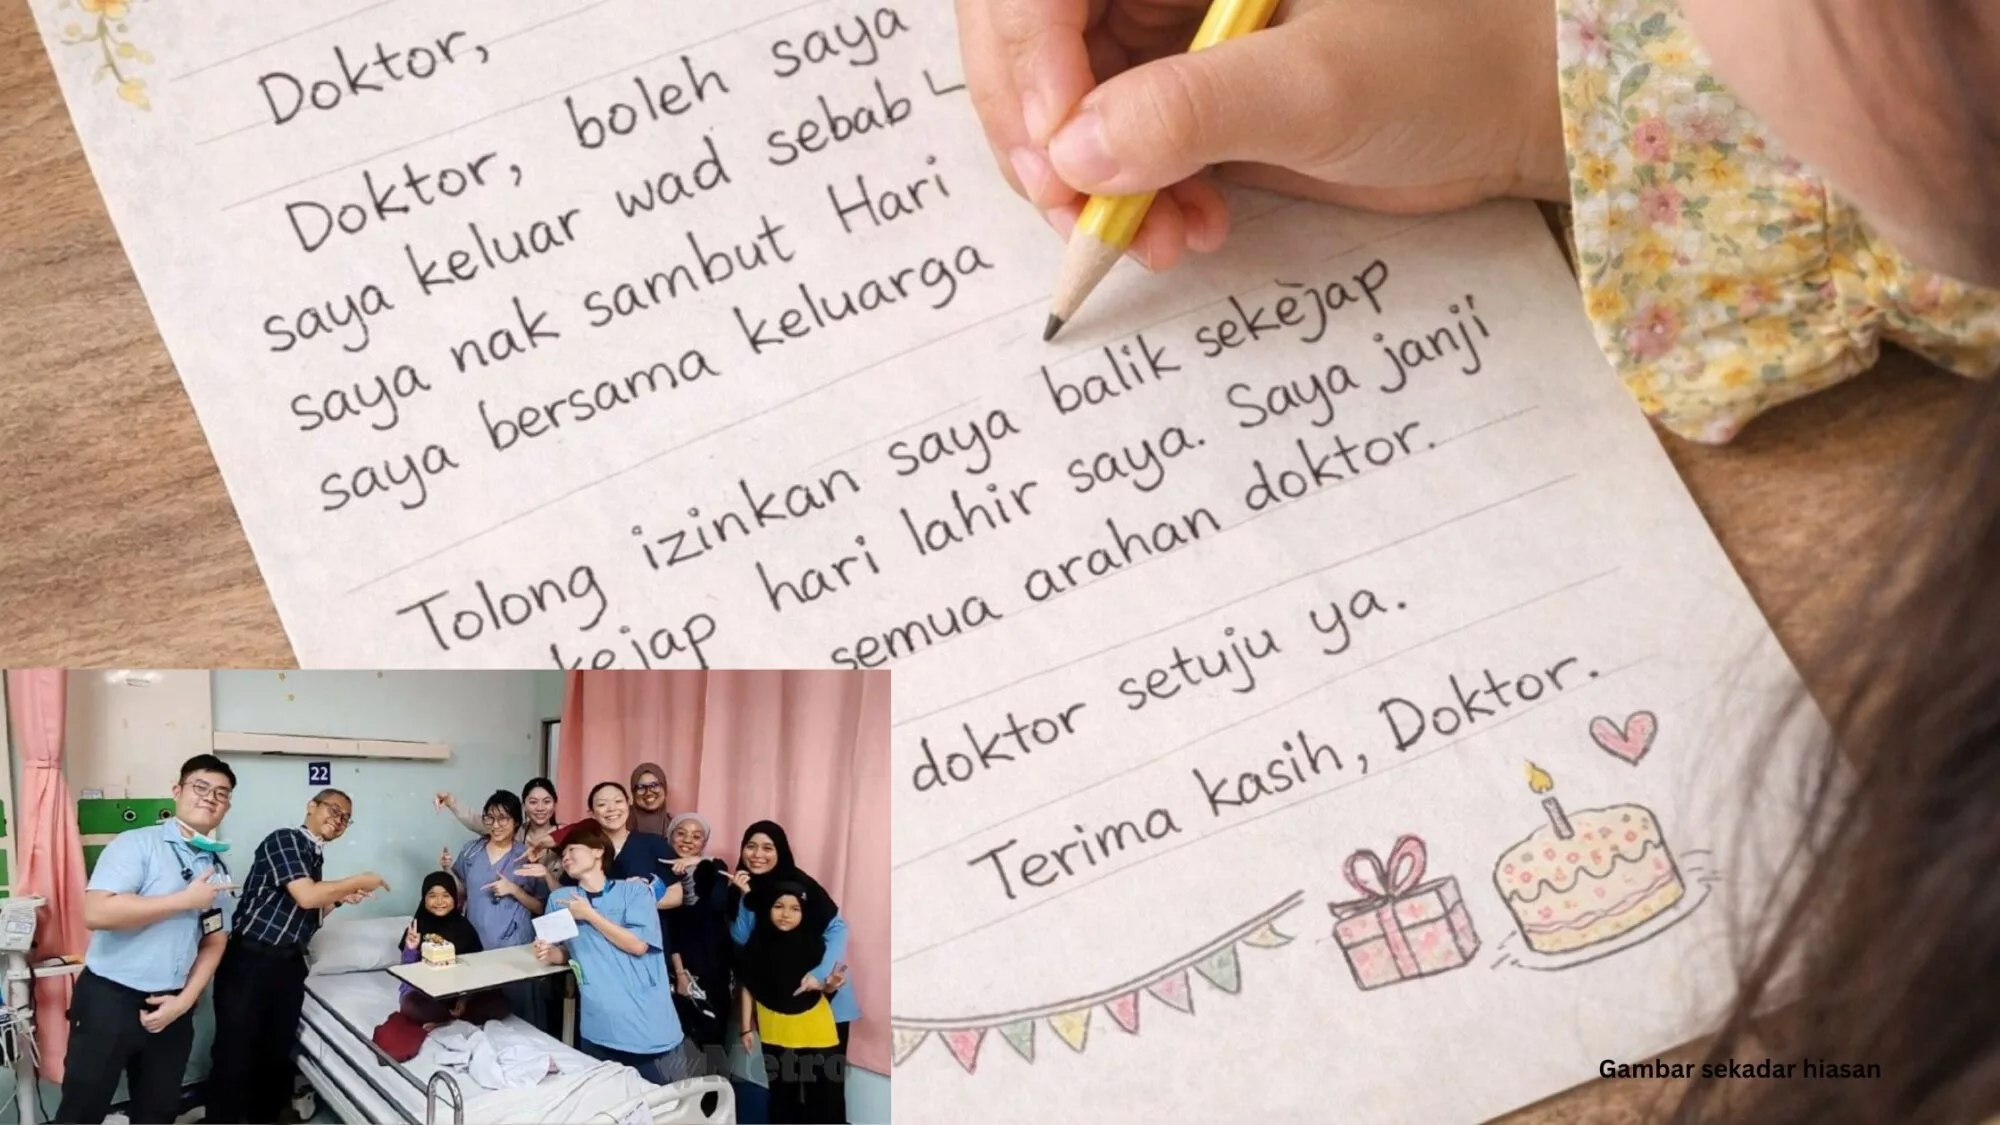 Doktor,
Doktor, boleh saya
saya keluar wad sebab
saya nak sambut Hari
saya bersama keluarga
Tolong izinkan saya balik sekèjap
kejap hari lahir saya. Saya janji
semua arahan doktor.
doktor setuju ya.
Terima kasih, Doktor.
22
Metro
Gambar sekadar hiasan